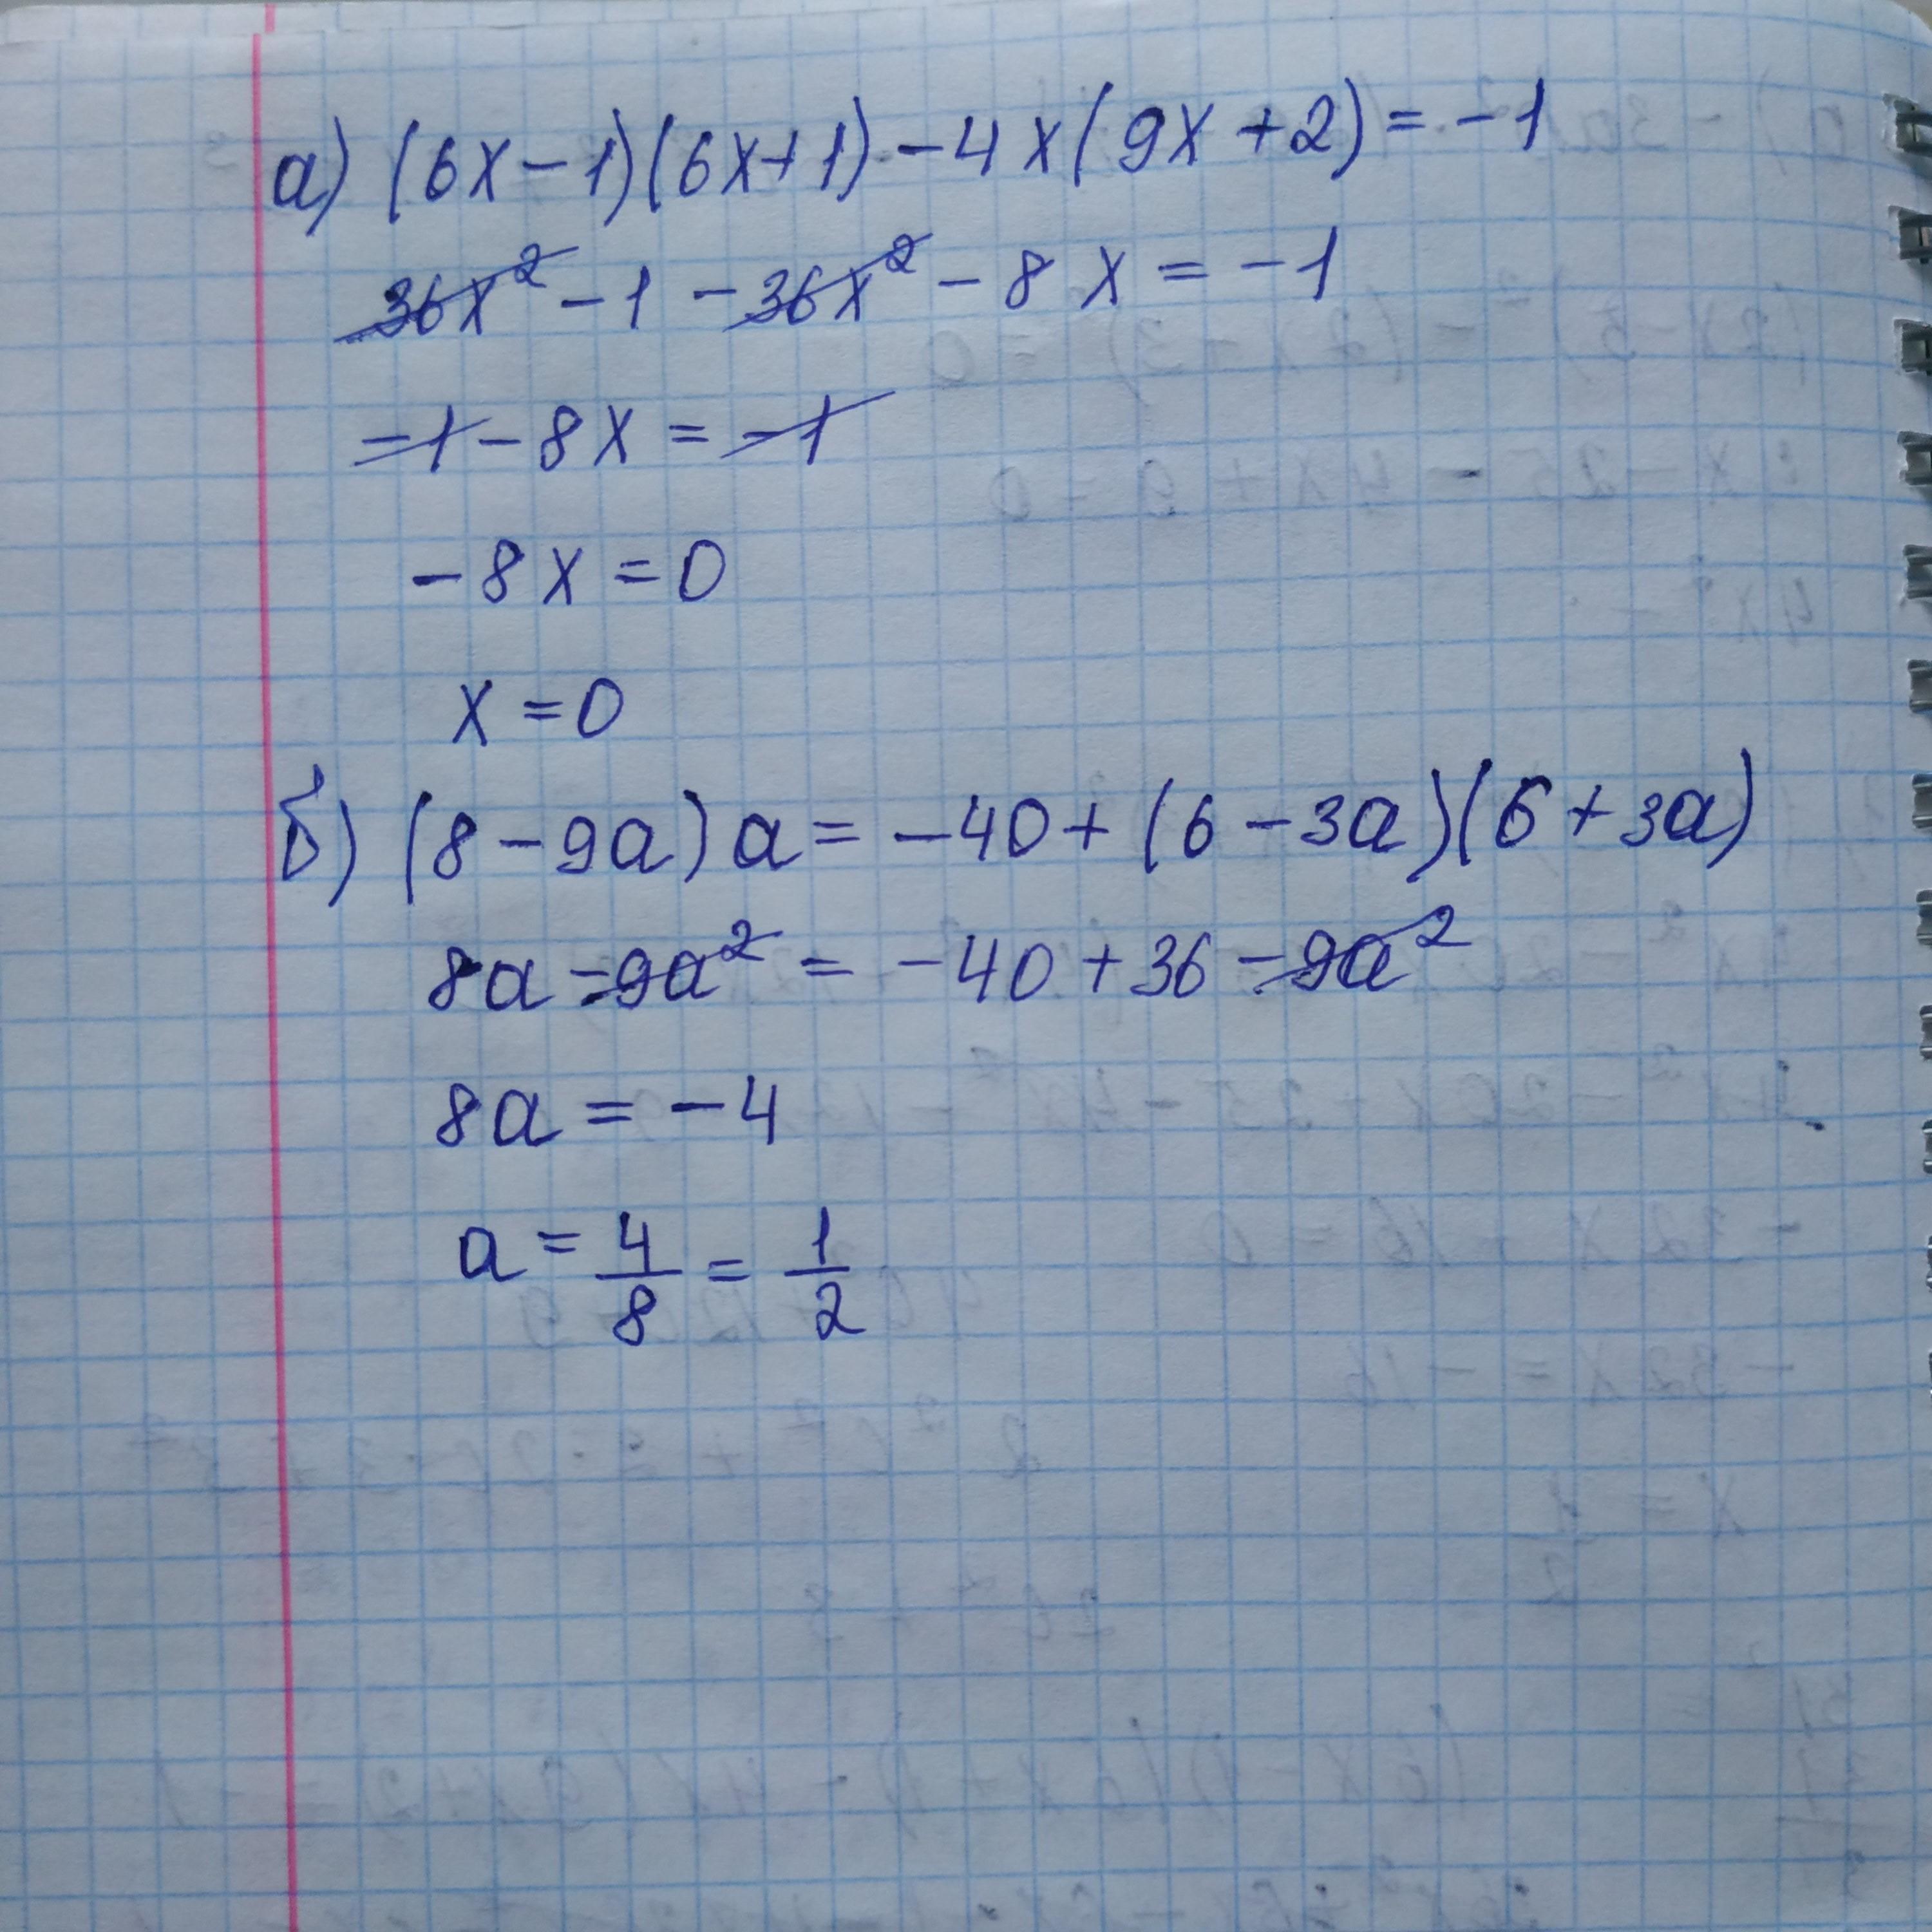 а) (6x-1)(6x+1)-4x(9x+2)=-1
36x²-1-36x²-8x=-1
-1-8x=-1
-8x=0
x=0
б) (8-9a)a=-40+(6-3a)(6+3a)
8a-9a²=-40+36-9a²
8a=-4
a=4/8=1/2